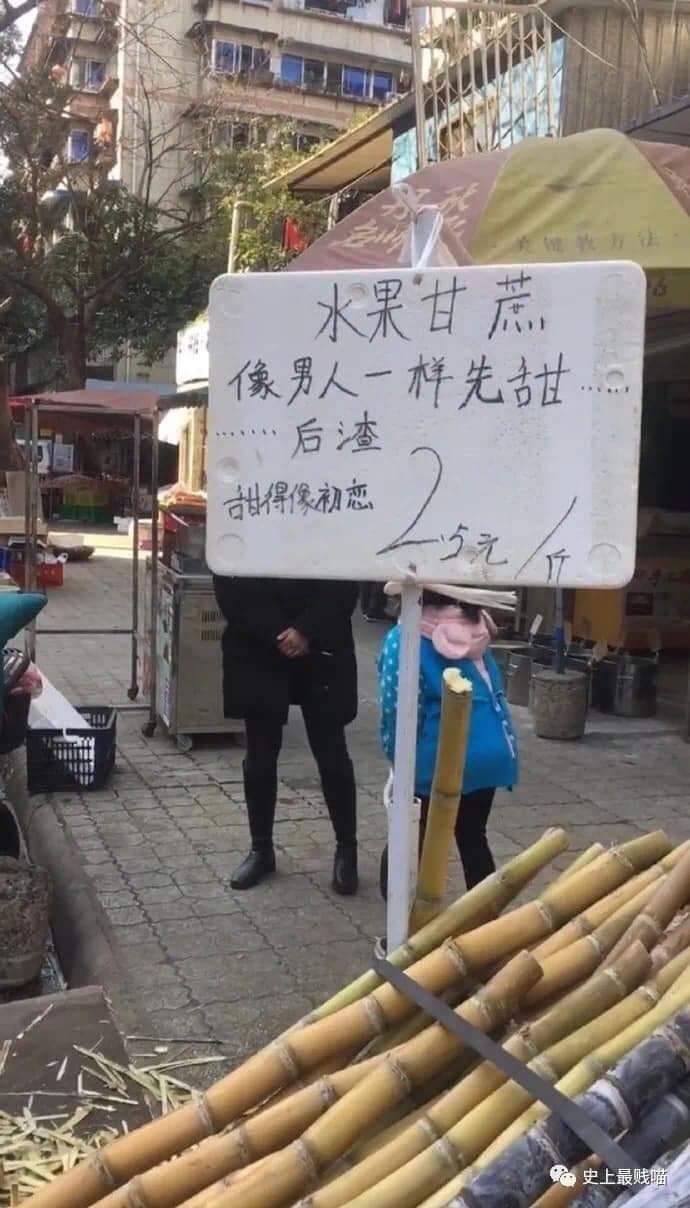 水果甘蔗
像男人一样先甜……
……后渣
甜得像初恋
2.5元/斤
史上最贱喵